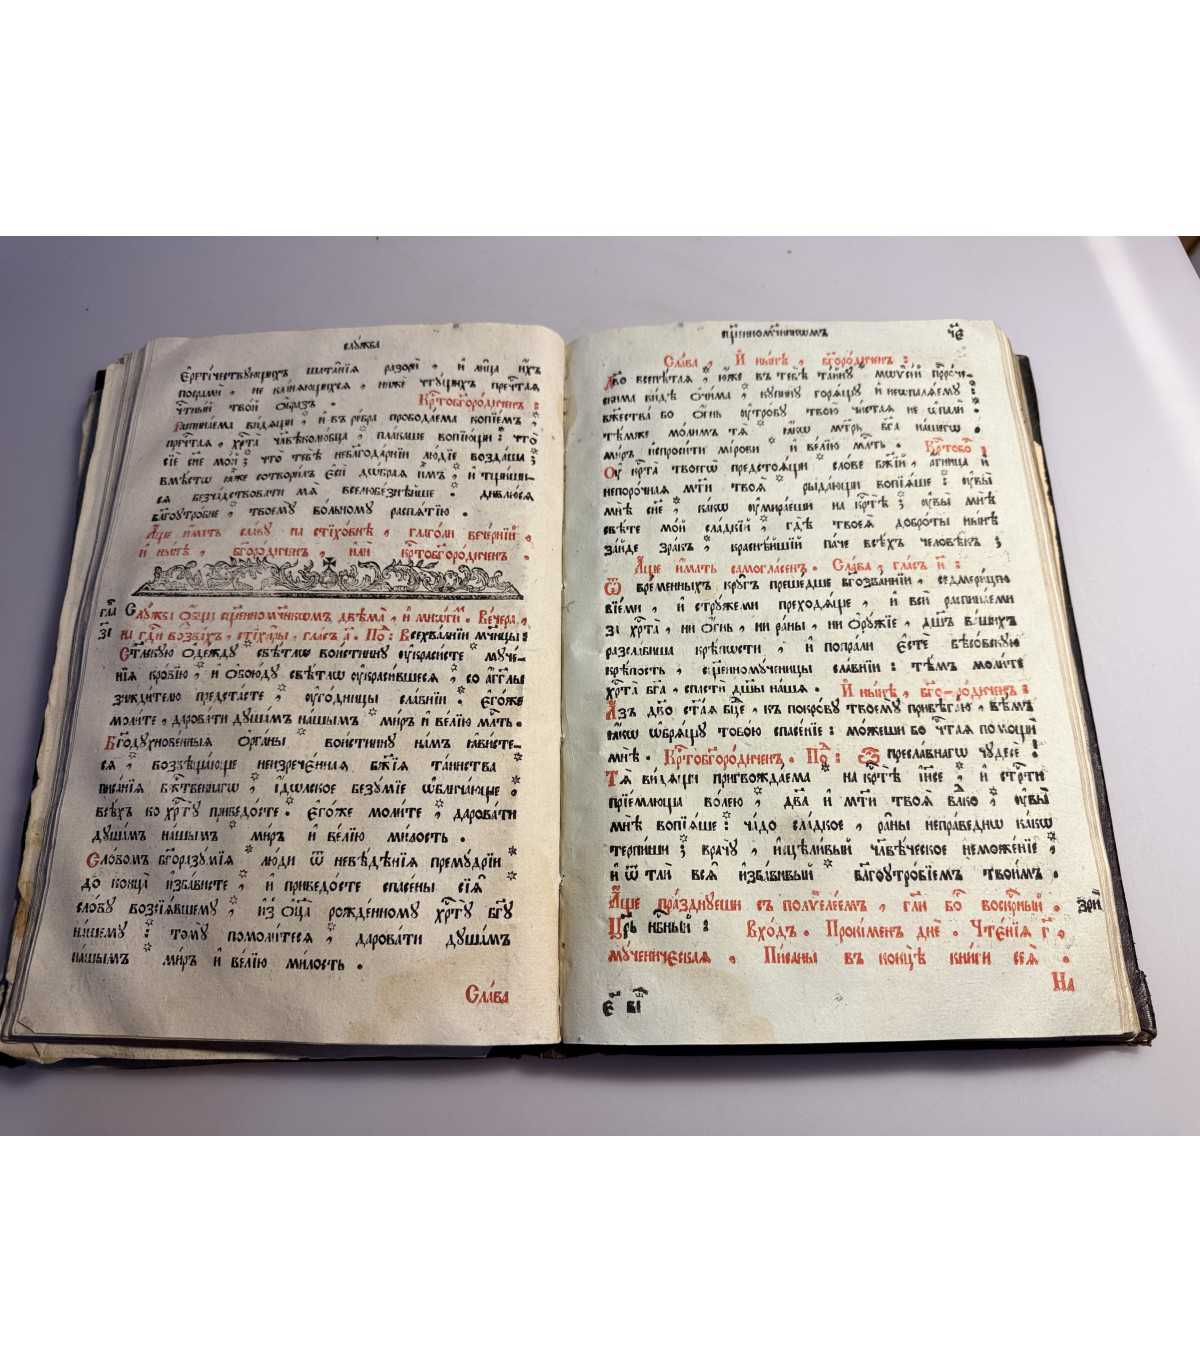 слꙋжба
Є҆ретїчествꙋющихъ шатанїѧ разори̂ , и҆ лица и҆хъ
посрами̂ , не кланѧющихсѧ , ниже чтꙋщихъ пречⷭ҇таѧ
чⷭ҇тныи твои ѻ҆бразъ . Крⷭ҇тобг҃оро́диченъ :
Распинаема видѧщи ҂ и҆ въ ребра прободаема копїемъ ,
пречⷭ҇таѧ , хрⷭ҇та чл҃вѣколюбца , плакаше вопїющи : что
сїѐ сн҃е мои́ ; что тебѣ неблагода́рнїи лю́дїе воздаша ;
вмѣстѡ ꙗ҆же сотвори́лъ є҆сѝ дѡ́браѧ и҆̀мъ , и҆ тщиши-
сѧ безча́дствовати мѧ̀ вселюбезнѣ́йше . дивлю́сѧ
бл҃гоꙋтро́бне , твоемꙋ̀ во́льномꙋ распѧ́тїю .
А҆́ще и҆́мать сла́вꙋ на стїхо́внѣ , глаго́ли вече́рнїй ,
и҆ нн҃ѣ , бг҃оро́диченъ , и҆лѝ крⷭ҇тобг҃оро́диченъ .
гла
зі
Слꙋ́жбы ѻ҆́бщы сщ҃енномч҃никѡмъ двѣма̀ , и҆ мнѡ́ги̑мъ . Ве́чера ,
на гдⷭ҇и воззва́хъ , стїхи̑ры , гла́съ а҃ . Поⷣ : Всехва́льнїи мч҃ницы :
Ст҃льскꙋю ѻ҆де́ждꙋ ҂ свѣ́тлѡ вои́стиннꙋ ᲂу҆краси́сте ҂ мꙋче́-
нїѧ кро́вїю , и҆ ѻ҆бою́дꙋ свѣ́тлѡ ᲂу҆краси́вшесѧ , со а҆́гг҃лы
зижди́телю предста́сте , ᲂу҆го́дницы сла́внїи , Є҆го́же
моли́те , дарова́ти дꙋша́мъ на́шымъ ҂ ми́ръ и҆ ве́лїю млⷭ҇ть .
Бг҃одꙋхнове́нныѧ ѻ҆рга́ны ҂ вои́стиннꙋ на́мъ ꙗ҆ви́сте-
сѧ , возвѣща́юще неизрече́ннаѧ ҂ бж҃їѧ та́инства ҂
писа̑нїѧ бжⷭ҇твеннагѡ , і҆́дѡльское безꙋ́мїе ѡ҆блича́юще :
всѣ́хъ ко хрⷭ҇тꙋ̀ приведо́сте . Є҆го́же моли́те , дарова́ти
дꙋша́мъ на́шымъ ҂ ми́ръ и҆ ве́лїю ми́лость .
Сло́вомъ бг҃оразꙋ́мїѧ ҂ лю́ди ѿ невѣ́дѣнїѧ премꙋ́дрїи ҂
до конца̀ и҆зба́висте , и҆ приведо́сте спасе́ны сїѧ̑ ҂
сло́вꙋ возсїѧ́вшемꙋ , и҆з̾ ѻ҆ц҃а̀ рожде́нномꙋ хрⷭ҇тꙋ̀ бг҃ꙋ
на́шемꙋ : томꙋ̀ помоли́тесѧ , дарова́ти дꙋша́мъ
на́шымъ ҂ ми́ръ и҆ ве́лїю ми́лость .
Сла́ва
сщ҃енномч҃никѡмъ
чє
Сла́ва , И҆ ны́нѣ , бг҃оро́диченъ :
Дв҃о всепѣ́таѧ , ю҆́же въ тебѣ̀ та́йнꙋ ҂ мѡѷсі́й прⷪ҇ро́че-
скима ви́дѣ ѻ҆чи́ма , кꙋпинꙋ̀ горѧ́щꙋ и҆ неѡпалѧ́емꙋ :
бжⷭ҇тва̀ бо ѻ҆́гнь , ᲂу҆тро́бꙋ твою̀ чи́стаѧ не ѡ҆палѝ .
тѣ́мже мо́лимъ тѧ̀ ҂ ꙗ҆́кѡ мт҃рь бг҃а на́шегѡ ҂
ми́ръ и҆спроси́ти мі́рови ҂ и҆ ве́лїю млⷭ҇ть . Крⷭ҇тобⷪ҇ :
Оу҆ крⷭ҇та̀ твоегѡ̀ предстоѧ́щи ҂ сло́ве бж҃їй , а҆́гница и҆
непоро́чнаѧ мт҃и твоѧ̀ ҂ рыда́ющи вопїѧ́ше : ᲂу҆вы̀
мнѣ̀ сн҃е , ка́кѡ ᲂу҆мира́еши на крⷭ҇тѣ̀ ; ᲂу҆вы̀ мнѣ̀
свѣ́те мо́й сла́дкїй , гдѣ̀ твоеѧ̀ добро́ты ны́нѣ
за́йде зра́къ , краснѣ́йшїй па́че всѣ́хъ человѣ́къ ;
А҆́ще и҆́мать самогла́сенъ . Сла́ва , гла́съ и҃ :
Ѿ вре́менныхъ крꙋ́гъ преше́дше бг҃озва́ннїи , седмери́цею
бїе́ми , и҆ стрꙋ́жеми преходѧ́ще , и҆ всѝ распина́еми
зі хрⷭ҇та̀ , ни ѻ҆́гнь , ни ра̑ны , ни ѻ҆рꙋ́жїе , дш҃ъ ва́шихъ
разсла́биша крѣ́пѡсти , и҆ попра́ли є҆стѐ бѣсо́вскꙋю
крѣ́пость , сщ҃енномꙋ́ченицы сла́внїи : тѣ́мъ моли́те
хрⷭ҇та̀ бг҃а , спастѝ дш҃ы на́шѧ . И҆ ны́нѣ , бг҃о-ро́диченъ :
А҆́зъ дв҃о ст҃а́ѧ бц҃е , къ покро́вꙋ твоемꙋ̀ прибѣга́ю , вѣ́мъ
ꙗ҆́кѡ ѡ҆брѧ́щꙋ тобо́ю спасе́нїе : мо́жеши бо чⷭ҇таѧ помощѝ
мнѣ̀ . Крⷭ҇тобг҃оро́диченъ . Поⷣ : Ѽ пресла́внагѡ чꙋдесѐ :
Тѧ̀ ви́дѧщи пригвожда́ема ҂ на крⷭ҇тѣ̀ і҆и҃се , и҆ стрⷭ҇ти
прїе́млюща во́лею , дв҃а и҆ мт҃и твоѧ̀ влⷣко , ᲂу҆вы̀
мнѣ̀ вопїѧ́ше : ча́до сла́дкое , ра̑ны непра́веднѡ ка́кѡ
те́рпиши ; врачꙋ̀ , и҆сцѣли́вый чл҃вѣ́ческое неможе́нїе ,
и҆ ѿ тлѝ всѧ̑ и҆зба́вивый ҂ благоꙋтро́бїемъ твои́мъ .
А҆́ще пра́зднꙋеши съ полѷеле́емъ , гл҃и бⷪ҇ воскрⷭ҇ный .
зрѝ
Цр҃ь нбⷭ҇ный : Вхо́дъ . Прокі́менъ днѐ . Чте̑нїѧ г҃ ,
мꙋ́ченическаѧ , Пи̑саны въ концѣ̀ кни́ги сеѧ̀ .
На
є҃ ві